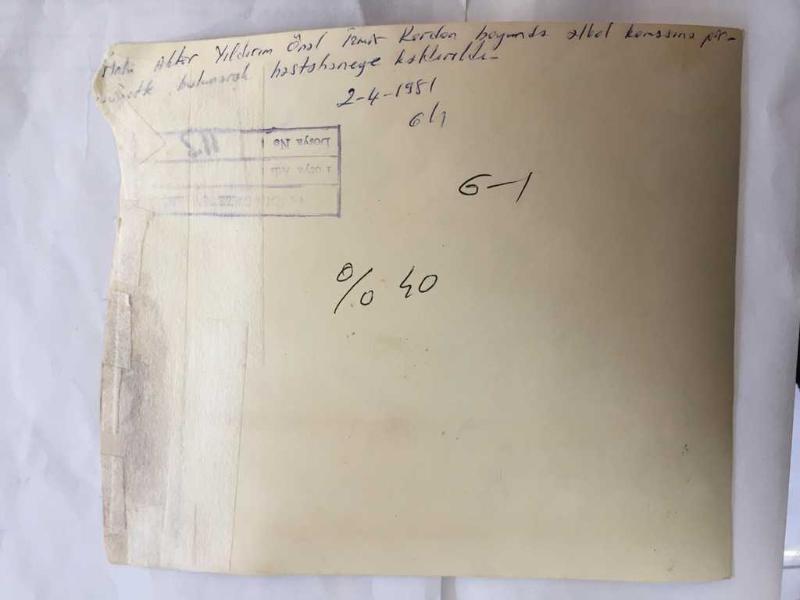 Aktör Yıldırım Önal İzmir Kordon boyunda alkol komasına
bulunarak hastahaneye kaldırıldı-
2-4-1981
6/1
Dosya No 113
Dosya Adı
6-1
% 40